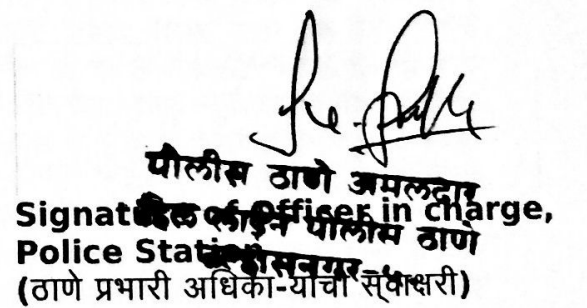 पोलीस ठाणे अमलदार
हिल लाईन पोलीस ठाणे
Signature of Officer in charge,
Police Station
(ठाणे प्रभारी अधिका-याची स्वाक्षरी)